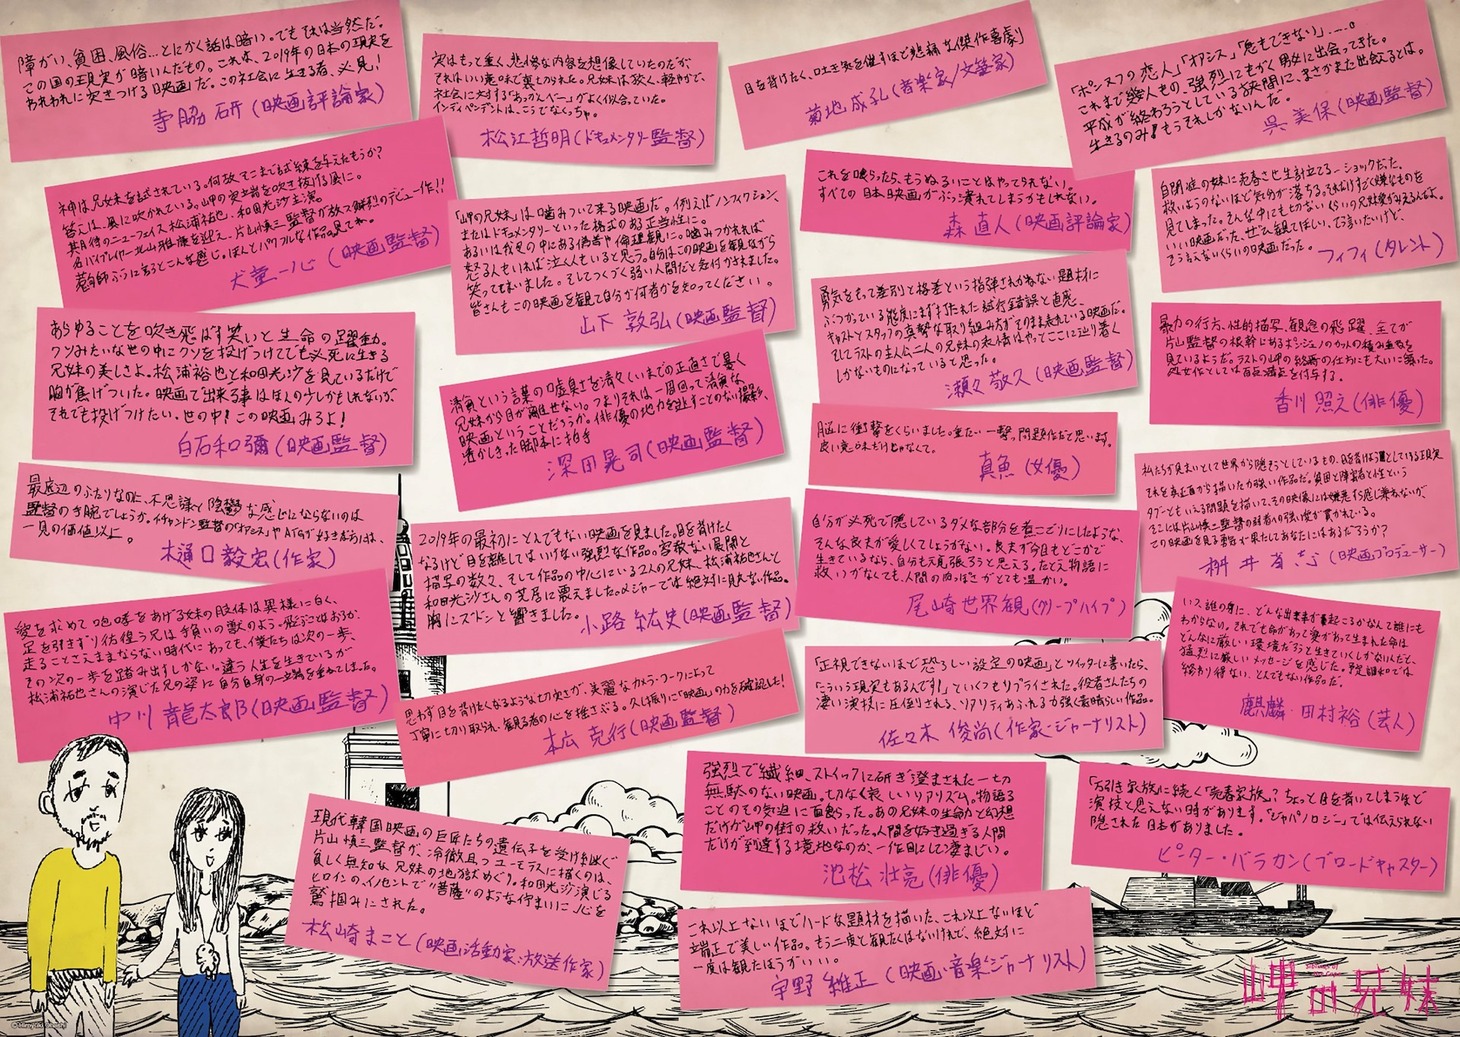 障がい、貧困、風俗…とにかく話は暗い。でもそれは当然だ。
この国の現実が暗いんだもの。これは、2019年の日本の現実を
われわれに突きつける映画だ。この社会に生きる者、必見！
寺脇 研（映画評論家）
実はもっと重く、悲惨な内容を想像していたのだが、
それはいい意味で裏切られた。兄妹は強く、軽やかで、
社会に対する「あっかんべー」がよく似合っていた。
インディペンデントは、こうでなくっちゃ。
松江哲明（ドキュメンタリー監督）
目を背けたく、吐き気を催すほど悲痛な傑作喜劇
菊地 成孔（音楽家/文筆家）
「ポンヌフの恋人」「オアシス」「息もできない」……。
これまで幾人もの、強烈にもがく男女に出会ってきた。
平成が終わろうとしている狭間に、まさかまた出会えるとは。
生きるのみ！もうそれしかないんだ。
呉 美保（映画監督）
神は兄妹を試されている。何故そこまで試練を与えたもうか？
答えは、風に吹かれている。岬の突端を吹き抜ける風に。
期待のニューフェイス松浦祐也、和田光沙主演。
名バイプレイヤー北山雅康を迎え、片山慎三監督が放つ鮮烈のデビュー作！！
ぼんとパワフルな作品見てね。
犬童一心（映画監督）
「岬の兄妹」は噛みついて来る映画だ。例えばノンフィクション、
またはドキュメンタリーといった格式のある正当性に。
あるいは我見の中にある偽善や倫理観に。噛みつかれれば、
怒る人もいれば泣く人もいると思う。自分はこの映画を観ながら
笑ってしまいました。そしてつくづく弱い人間だと気付かされました。
皆さんもこの映画を観て自分が何者かを知ってください。
山下 敦弘（映画監督）
これを喰らったら、もうぬるいことはやってられない。
すべての日本映画がぶっ潰れてしまうかもしれない。
森 直人（映画評論家）
自閉症の妹に売春させ生計立てる…ショックだった。
救いようのないほど気分が落ちる。それだけすごく嫌なものを
見てしまった。そんな中にも切ないくらいの兄妹愛がみえるんよ。
いい映画だった、ぜひ観てほしい、て言いたいけど、
そう言えないくらいの映画だった。
フィフィ（タレント）
あらゆることを吹き飛ばす笑いと生命の躍動。
クソみたいな世の中にクソを投げつけてでも必死に生きる
兄妹の美しさよ。松浦裕也と和田光沙を見ているだけで
胸が焦げついた。映画で出来る事はほんの少しかもしれないが
それでも投げつけたい。世の中！この映画みろよ！
白石和彌（映画監督）
清貧という言葉の嘘臭さを清々しいまでの正直さで暴く
兄妹から目が離せない。つまりそれは一周回って清貧な
映画ということだろうか。俳優の地力を逃すことのない撮影と、
透かしきった脚本に拍手
深田晃司（映画監督）
勇気をもって差別と格差という指弾されかねない題材に
ぶつかっている態度にまず打たれた。試行錯誤と直感、
キャストとスタッフの真摯な取り組み方がそのまま表れている映画だ。
そしてラストの主人公二人の兄妹の表情はやってここに辿り着く
しかないものになっていると思った。
瀬々 敬久（映画監督）
暴力の行方、性的描写、観念の飛躍、全てが
片山監督の根幹にあるポジショのカットの積み重ねを
見ているようだ。ラストの岬の終着の仕方にも大いに驚いた。
処女作としては百点満点を付与する。
香川 照之（俳優）
脳に衝撃をくらいました。重たい一撃。問題作だと思います。
良い意味だけじゃなくて。
真魚（女優）
私たちが見まいとして世界から隠そうとしているもの、目を背けようとしている現実
それを真正面から描いた力強い作品だ。貧困と障害者と性という
タブーともいえる問題を描いて、その映像には嫌悪すら感じ兼ねないが、
そこには片山慎三監督の対者への強い愛が貫かれている。
この映画を見る勇気が果たしてあなたにはあるだろうか？
桝井省志（映画プロデューサー）
最底辺のふたりなのに、不思議と陰鬱な感じにならないのは
監督の手腕でしょうか。イ・チャンドン監督の「オアシス」やATGが好きな方には、
一見の価値以上。
樋口毅宏（作家）
2019年の最初にとんでもない映画を見ました。目を背けたく
なるけど目を離してはいけない強烈な作品。容赦ない展開と
描写の数々、そして作品の中心にいる2人の兄妹、松浦祐也さんと
和田光沙さんの芝居に震えました。メジャーでは絶対に見れない作品。
胸にズドンと響きました。
小路 紘史（映画監督）
自分が必死で隠しているダメな部分を煮こごりにしたような、
そんな良夫が愛しくてしょうがない。良夫が今日もどこかで
生きているなら、自分も頑張ろうと思える。たとえ物語に
救いがなくても、人間の肉っぽさがとても温かい。
尾崎世界観（クリープハイプ）
いつ、誰の身に、どんな出来事が巻起こるかなんて誰にも
わからない。それでも命があって愛があって生まれた命は
どんなに厳しい環境だろうと生きていくしかないんだと、
猛烈に厳しいメッセージを感じた。予定調和では
終わり得ない、とんでもない作品だ。
麒麟・田村裕（芸人）
愛を求めて咆哮をあげる妹の肢体は異様に白く、
足を引きずり彷徨う兄は手負いの獣のよう。飛ぶことはおろか、
走ることさえままならない時代にあっても、僕たちは次の一歩、
その次の一歩を踏み出すしかない。違う人生を生きているが
松浦祐也さんの演じた兄の姿に自分自身の一立端を重ねてしまった。
中川 龍太郎（映画監督）
思わず目を背けたくなるような切実さが、美麗なカメラ・ワークによって
丁寧に切り取られ、観る者の心を揺さぶる。久し振りに「映画」の力を確認した！
本広 克行（映画監督）
「正視できないほど恐ろしい設定の映画」とツイッターに書いたら、
「こういう現実もあるんです！」といくつもリプライされた。役者さんたちの
凄い演技に圧倒される、リアリティあふれる力強く素晴らしい作品。
佐々木 俊尚（作家・ジャーナリスト）
強烈で繊細、ストイックに研ぎ澄まされた一切
無駄のない映画。切なく哀しいリアリズム。物語る
ことのその気迫に面喰った。あの兄妹の生命力と幻想
だけが岬の街の救いだった。人間を好き過ぎる人間
だけが到達する境地なのか、一作目にして凄まじい。
池松 壮亮（俳優）
「万引き家族」に続く「売春家族」？ちょっと目を背いてしまうほど
演技と思えない時があります。「ジャパノロジー」では伝えられない
隠された日本がありました。
ピーター・バラカン（ブロードキャスター）
現代韓国映画の巨匠たちの遺伝子を受け継ぐ
片山慎三監督が、冷徹且つユーモラスに描くのは、
貧しく無知な兄妹の地獄めぐり。和田光沙演じる
ヒロインのイノセントで“菩薩”のような佇まいに心を
鷲掴みにされた。
松崎まこと（映画活動家・放送作家）
これ以上ないほどハードな題材を描いた、これ以上ないほど
端正で美しい作品。もう二度と観たくはないけれど、絶対に
一度は観たほうがいい。
宇野 維正（映画・音楽ジャーナリスト）
岬の兄妹